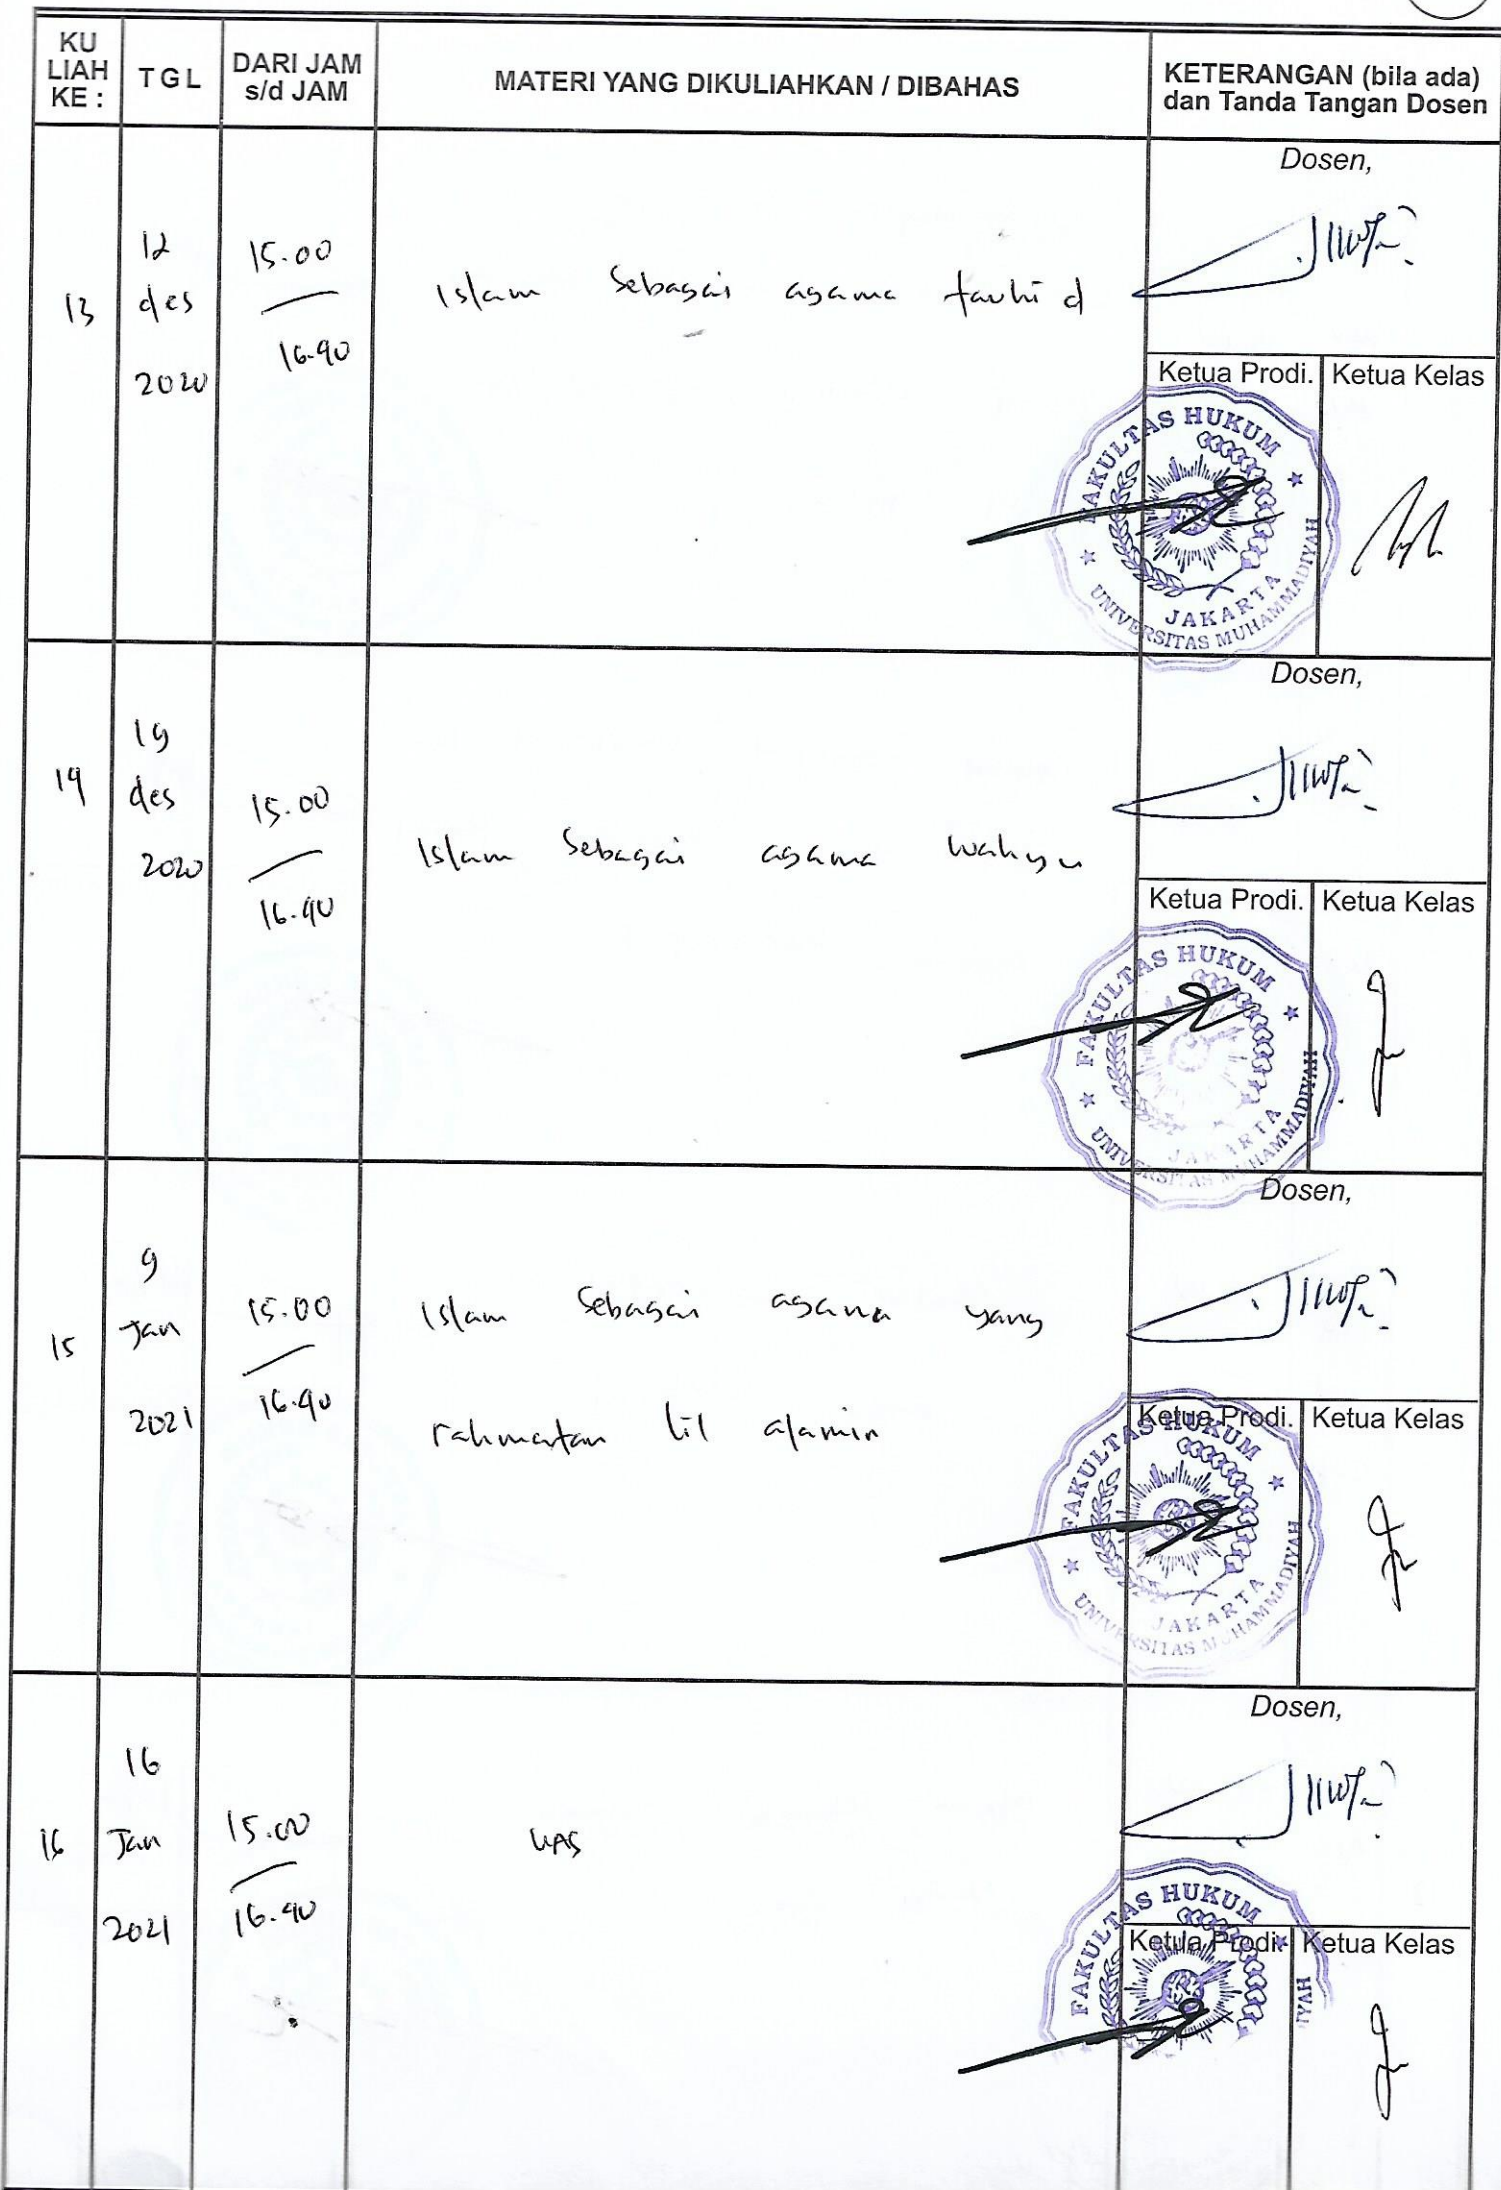 KU
LIAH
KE :
T G L
DARI JAM
s/d JAM
MATERI YANG DIKULIAHKAN / DIBAHAS
KETERANGAN (bila ada)
dan Tanda Tangan Dosen
13
12
des
2020
15.00
16.40
Islam Sebagai agama tauhid
Dosen,
Ketua Prodi.
Ketua Kelas
FAKULTAS HUKUM
JAKARTA
UNIVERSITAS MUHAMMADIYAH
14
19
des
2020
15.00
16.40
Islam Sebagai agama wahyu
Dosen,
Ketua Prodi.
Ketua Kelas
FAKULTAS HUKUM
JAKARTA
UNIVERSITAS MUHAMMADIYAH
15
9
Jan
2021
15.00
16.40
Islam Sebagai agama yang
rahmatan lil alamin
Dosen,
Ketua Prodi.
Ketua Kelas
FAKULTAS HUKUM
JAKARTA
UNIVERSITAS MUHAMMADIYAH
16
16
Jan
2021
15.00
16.40
UAS
Dosen,
Ketua Prodi.
Ketua Kelas
FAKULTAS HUKUM